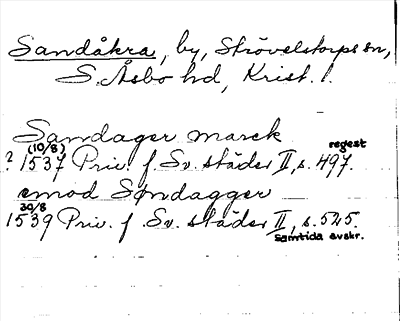 Sandåkra, by, Strövelstorps sn,
S. Åsbo hd, Krist. l.
Sandager marck
(10/8) regest
? 1537 Priv. f Sv. städer II, s. 497.
emod Søndagger
30/8
1539 Priv. f Sv. städer II, s. 525.
samtida avskr.